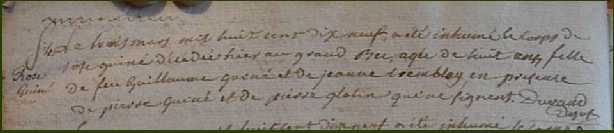 Le trois mars mil huit cent dix neuf, a été inhumé le corps de
Rose
Guiné
rose guiné décédée hier au grand Bec, agée de huit ans, fille
de feu Guillaume guené et de jeanne tremblay en présence
de pierre Guiné et de pierre glatin qui ne signent. Durand
huit cent dix neuf a été inhumé le